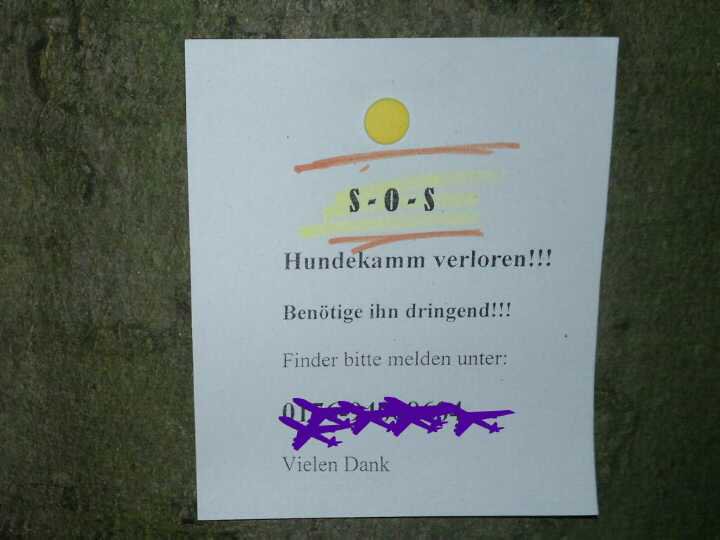 S - O - S
Hundekamm verloren!!!
Benötige ihn dringend!!!
Finder bitte melden unter:
Vielen Dank